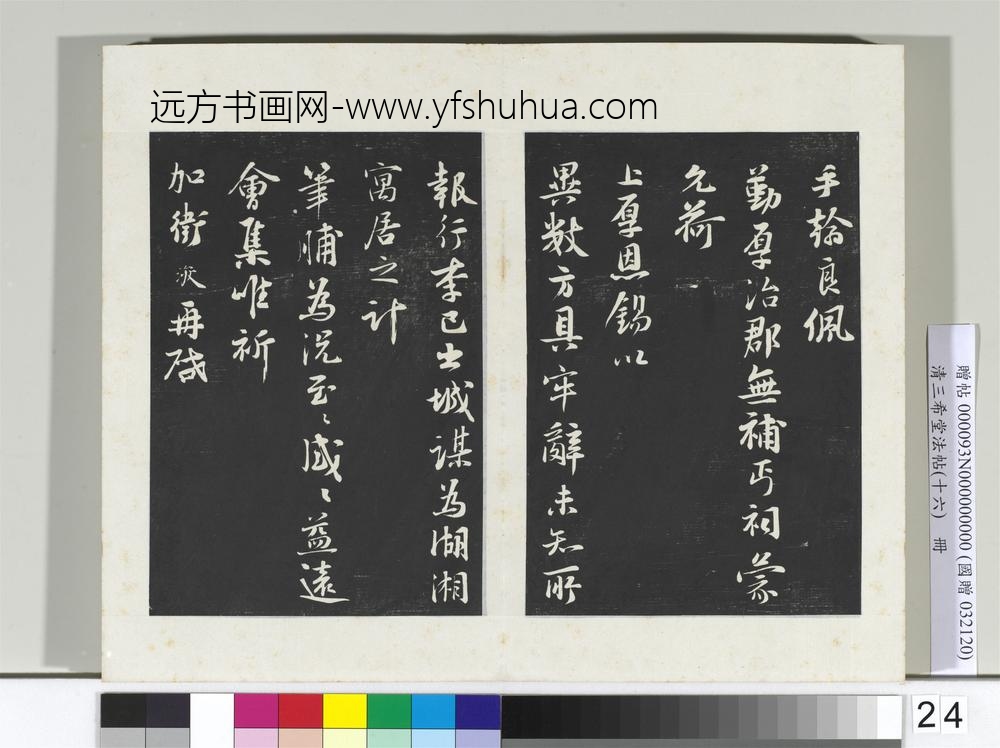 远方书画网-www.yfshuhua.com
手翰良佩
勤厚治郡無補丐祠蒙
允荷
上厚恩錫以
異數方具牢辭未知所
報行李已出城謀為湖湘
寓居之計
筆脯為況至〻感〻益遠
會集唯祈
加衛 浚再啓
贈帖 000093N000000000 (國贈 032120)
清三希堂法帖(十六) 冊
24